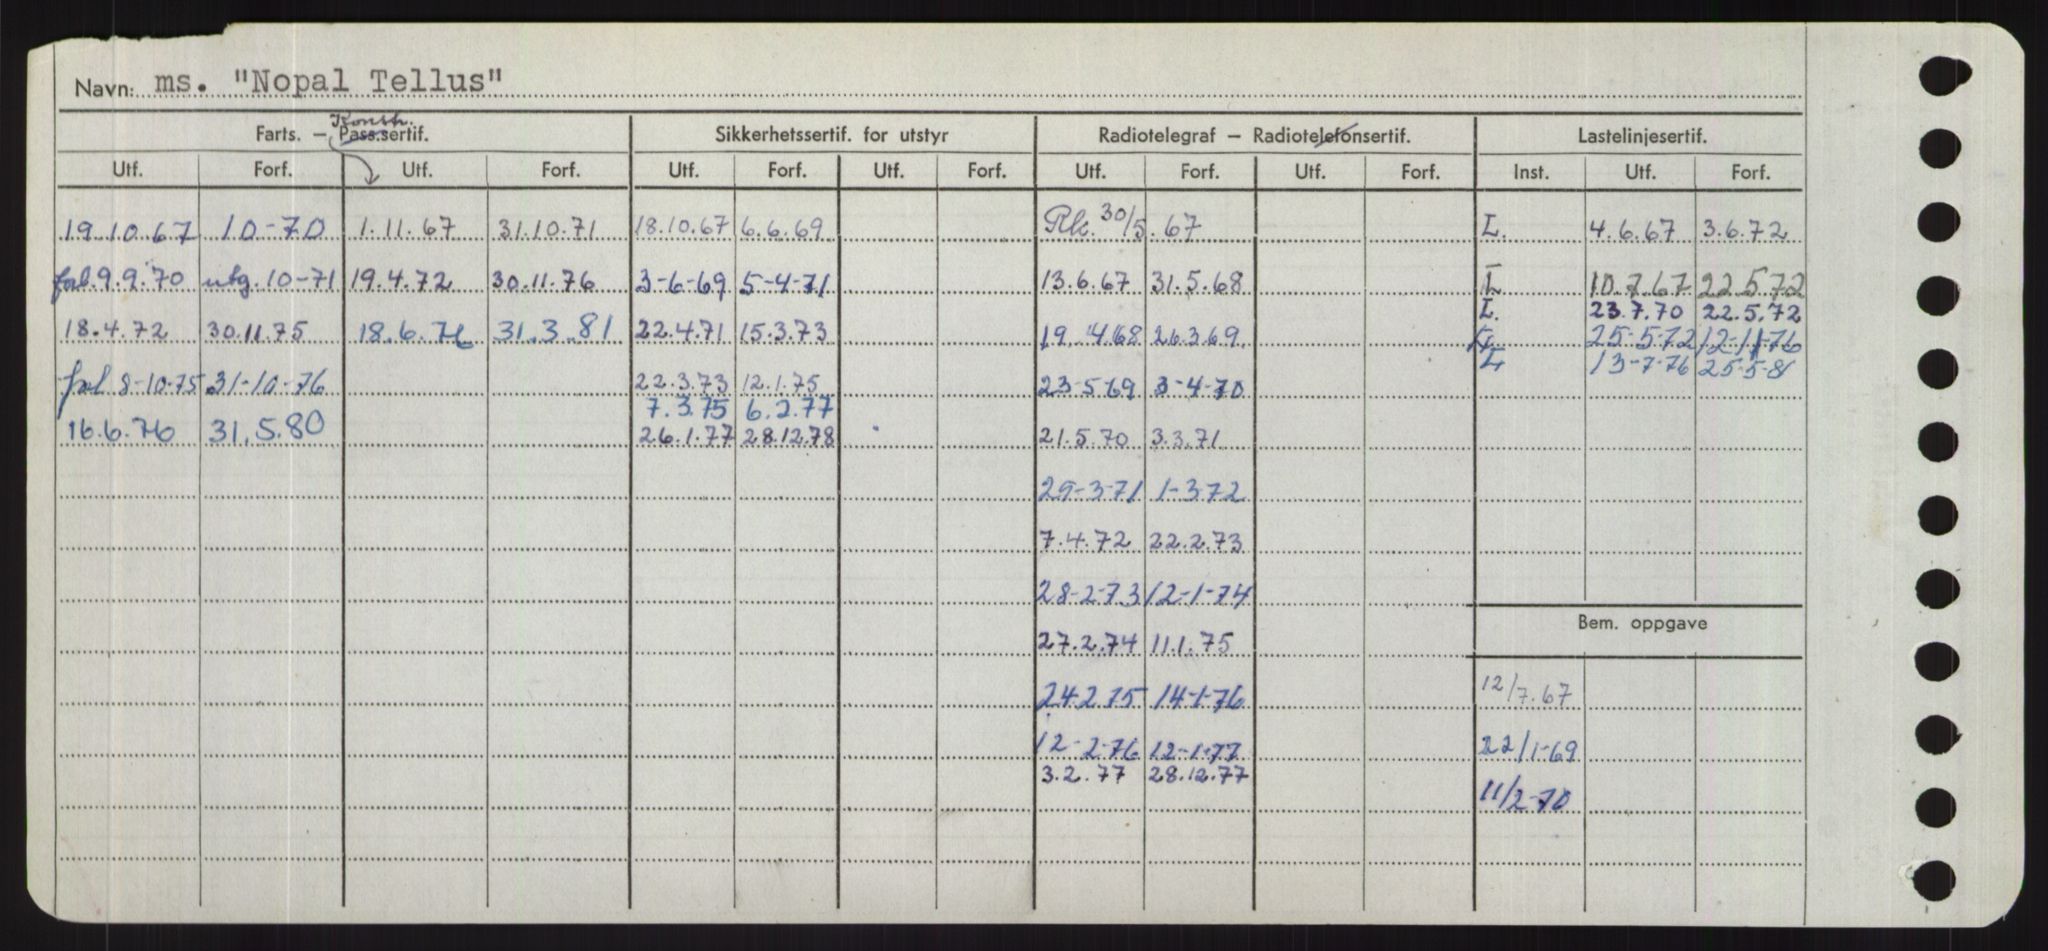 Navn: ms. "Nopal Tellus"
Farts. – Pass.sertif. Konstr. Sikkerhetssertif. for utstyr Radiotelegraf – Radiotelefonsertif. Lastelinjesertif.
Utf. Forf. Utf. Forf. Utf. Forf. Utf. Forf. Utf. Forf. Utf. Forf. Inst. Utf. Forf.
19.10.67 10-70 1.11.67 31.10.71 18.10.67 6.6.69 Rk. 30/5.67 L. 4.6.67 3.6.72
forl. 9.9.70 utg. 10-71 19.4.72 30.11.76 3-6-69 5-4-71 13.6.67 31.5.68 I 10.7.67 22.5.72
L. 23.7.70 22.5.72
18.4.72 30.11.75 18.6.76 31.3.81 22.4.71 15.3.73 19.4.68 26.3.69 25-5-72 12-11-76
L 13-7-76 25-5-81
forl 8-10-75 31-10-76 22.3.73 12.1.75 23-5-69 3-4-70
7.3.75 6.2.77
16.6.76 31.5.80 26.1.77 28.12.78 21.5.70 3.3.71
29-3-71 1-3-72
7.4.72 22.2.73
28-2-73 12-1-74
Bem. oppgave
27.2.74 11.1.75
24.2.75 14-1-76 12/7.67
12-2-76 12-1-77 22/1-69
3.2.77 28.12.77
11/2-70